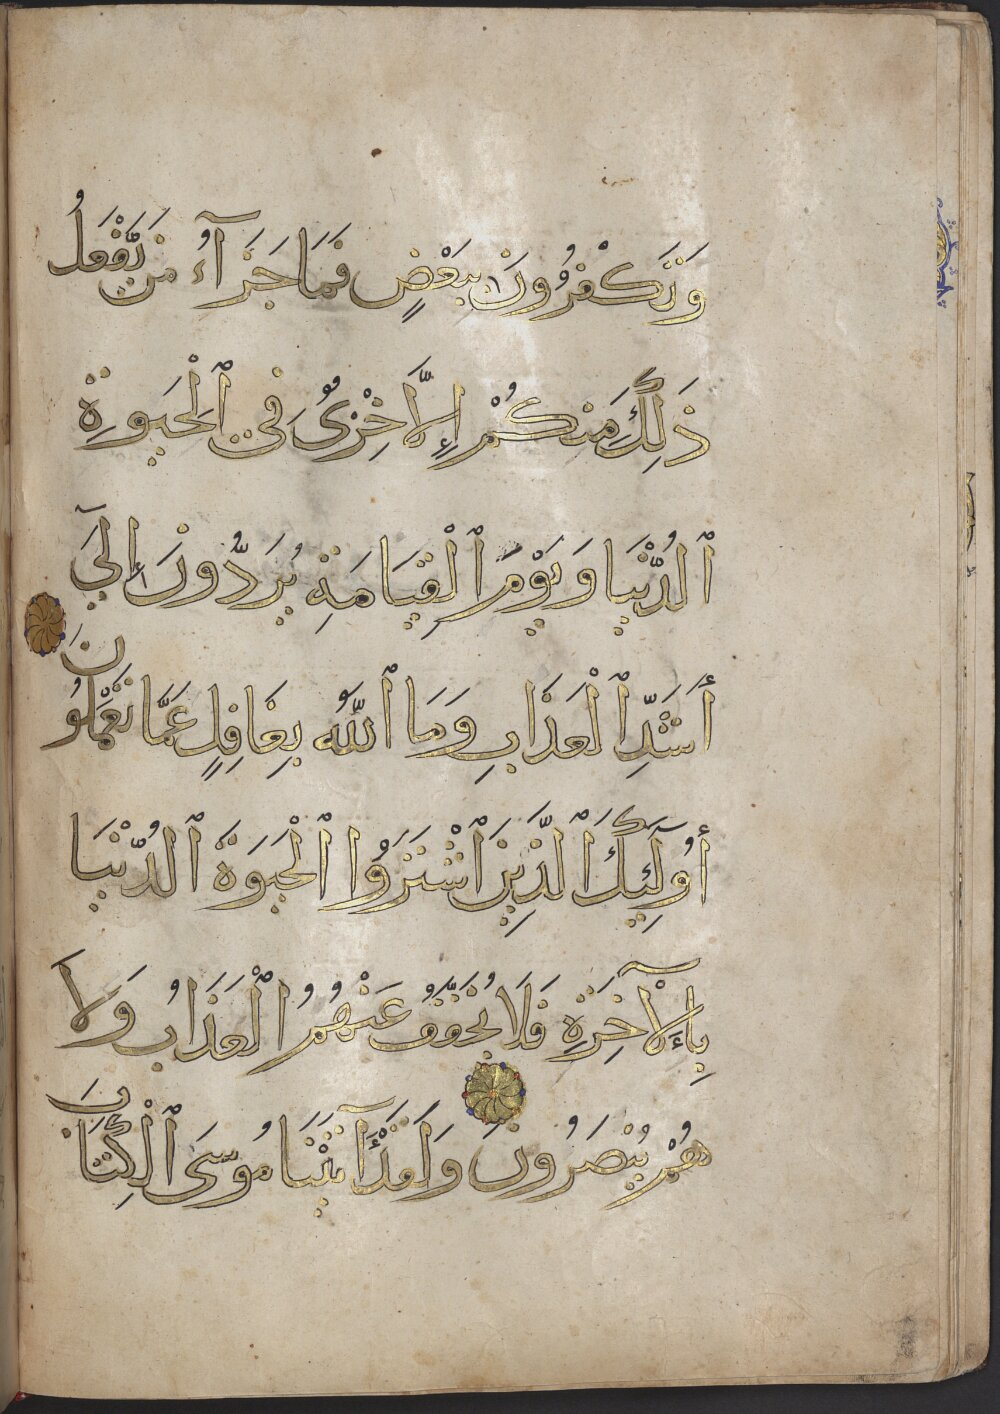 وَتَكْفُرُونَ بِبَعْضٍ فَمَا جَزَآءُ مَن يَّفْعَلُ
ذَٰلِكَ مِنكُمْ إِلَّا خِزْيٌ فِي ٱلْحَيَوٰةِ
ٱلدُّنْيَا وَيَوْمَ ٱلْقِيَامَةِ يُرَدُّونَ إِلَىٰٓ
أَشَدِّ ٱلْعَذَابِ وَمَا ٱللَّهُ بِغَافِلٍ عَمَّا تَعْمَلُونَ
أُولَٰٓئِكَ ٱلَّذِينَ ٱشْتَرَوُا ٱلْحَيَوٰةَ ٱلدُّنْيَا
بِٱلْآخِرَةِ فَلَا يُخَفَّفُ عَنْهُمُ ٱلْعَذَابُ وَلَا
هُمْ يُنصَرُونَ وَلَقَدْ آتَيْنَا مُوسَى ٱلْكِتَابَ